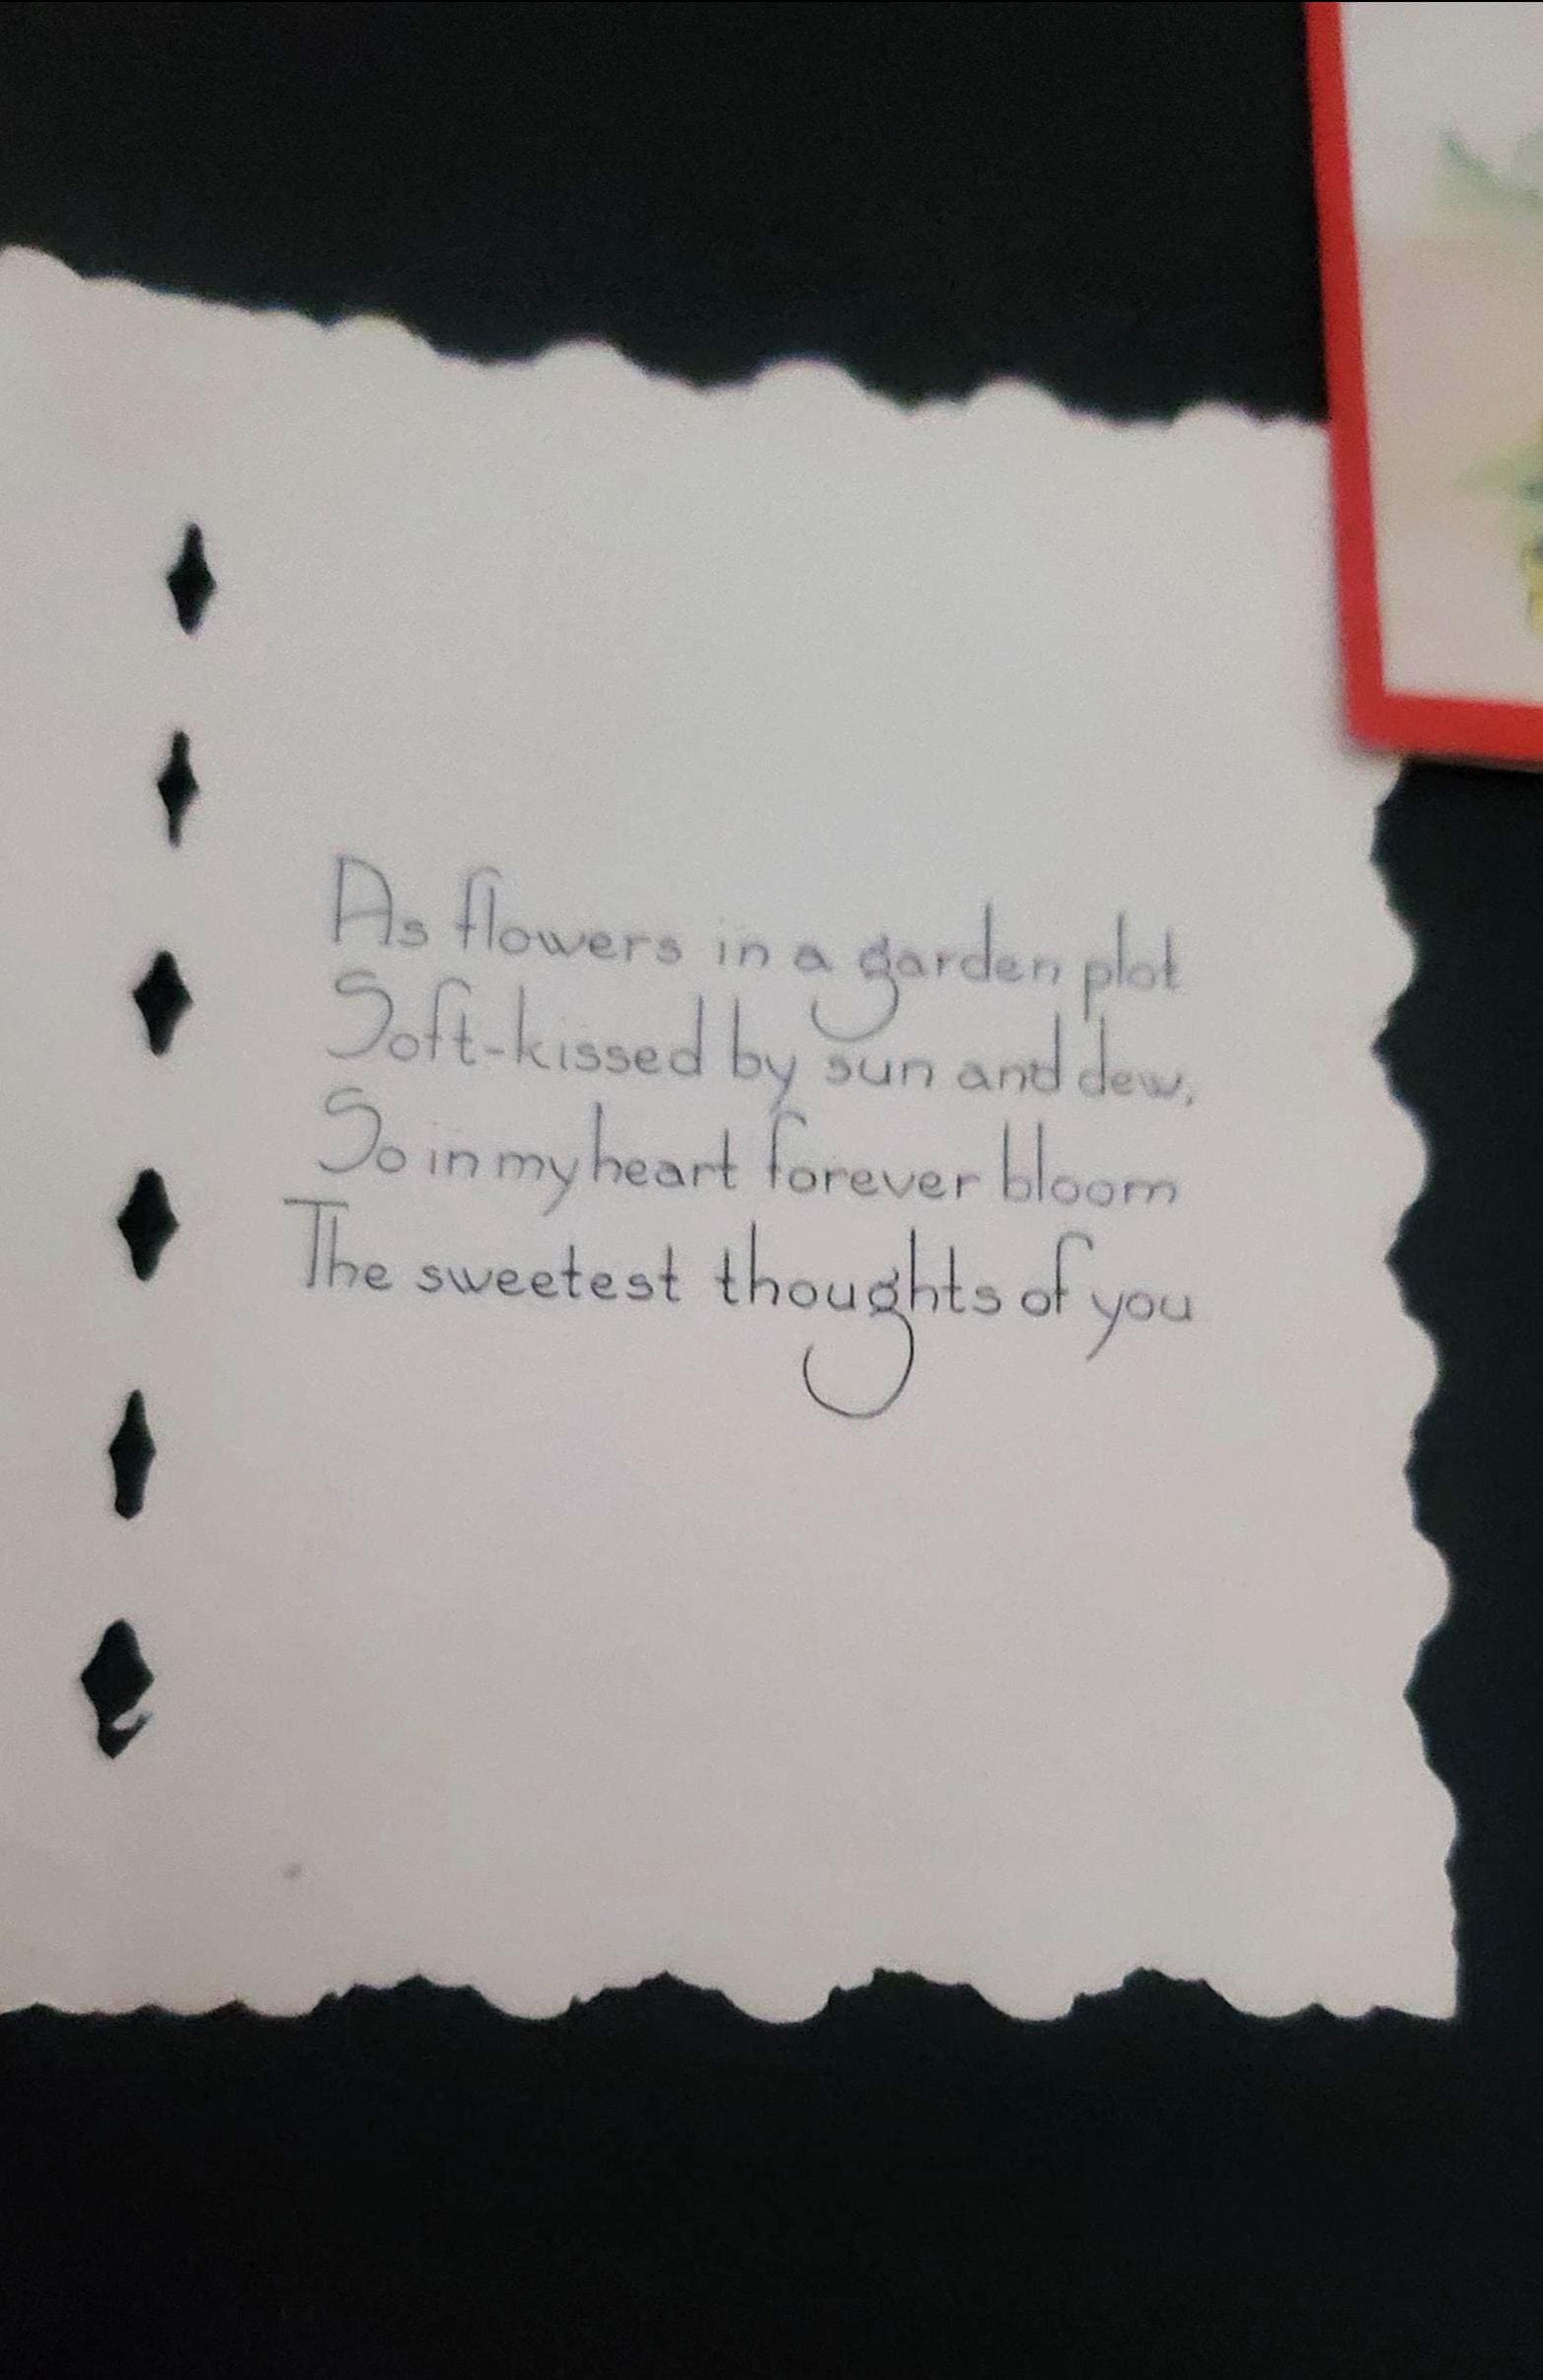 As flowers in a garden plot
Soft-kissed by sun and dew,
So in my heart forever bloom
The sweetest thoughts of you